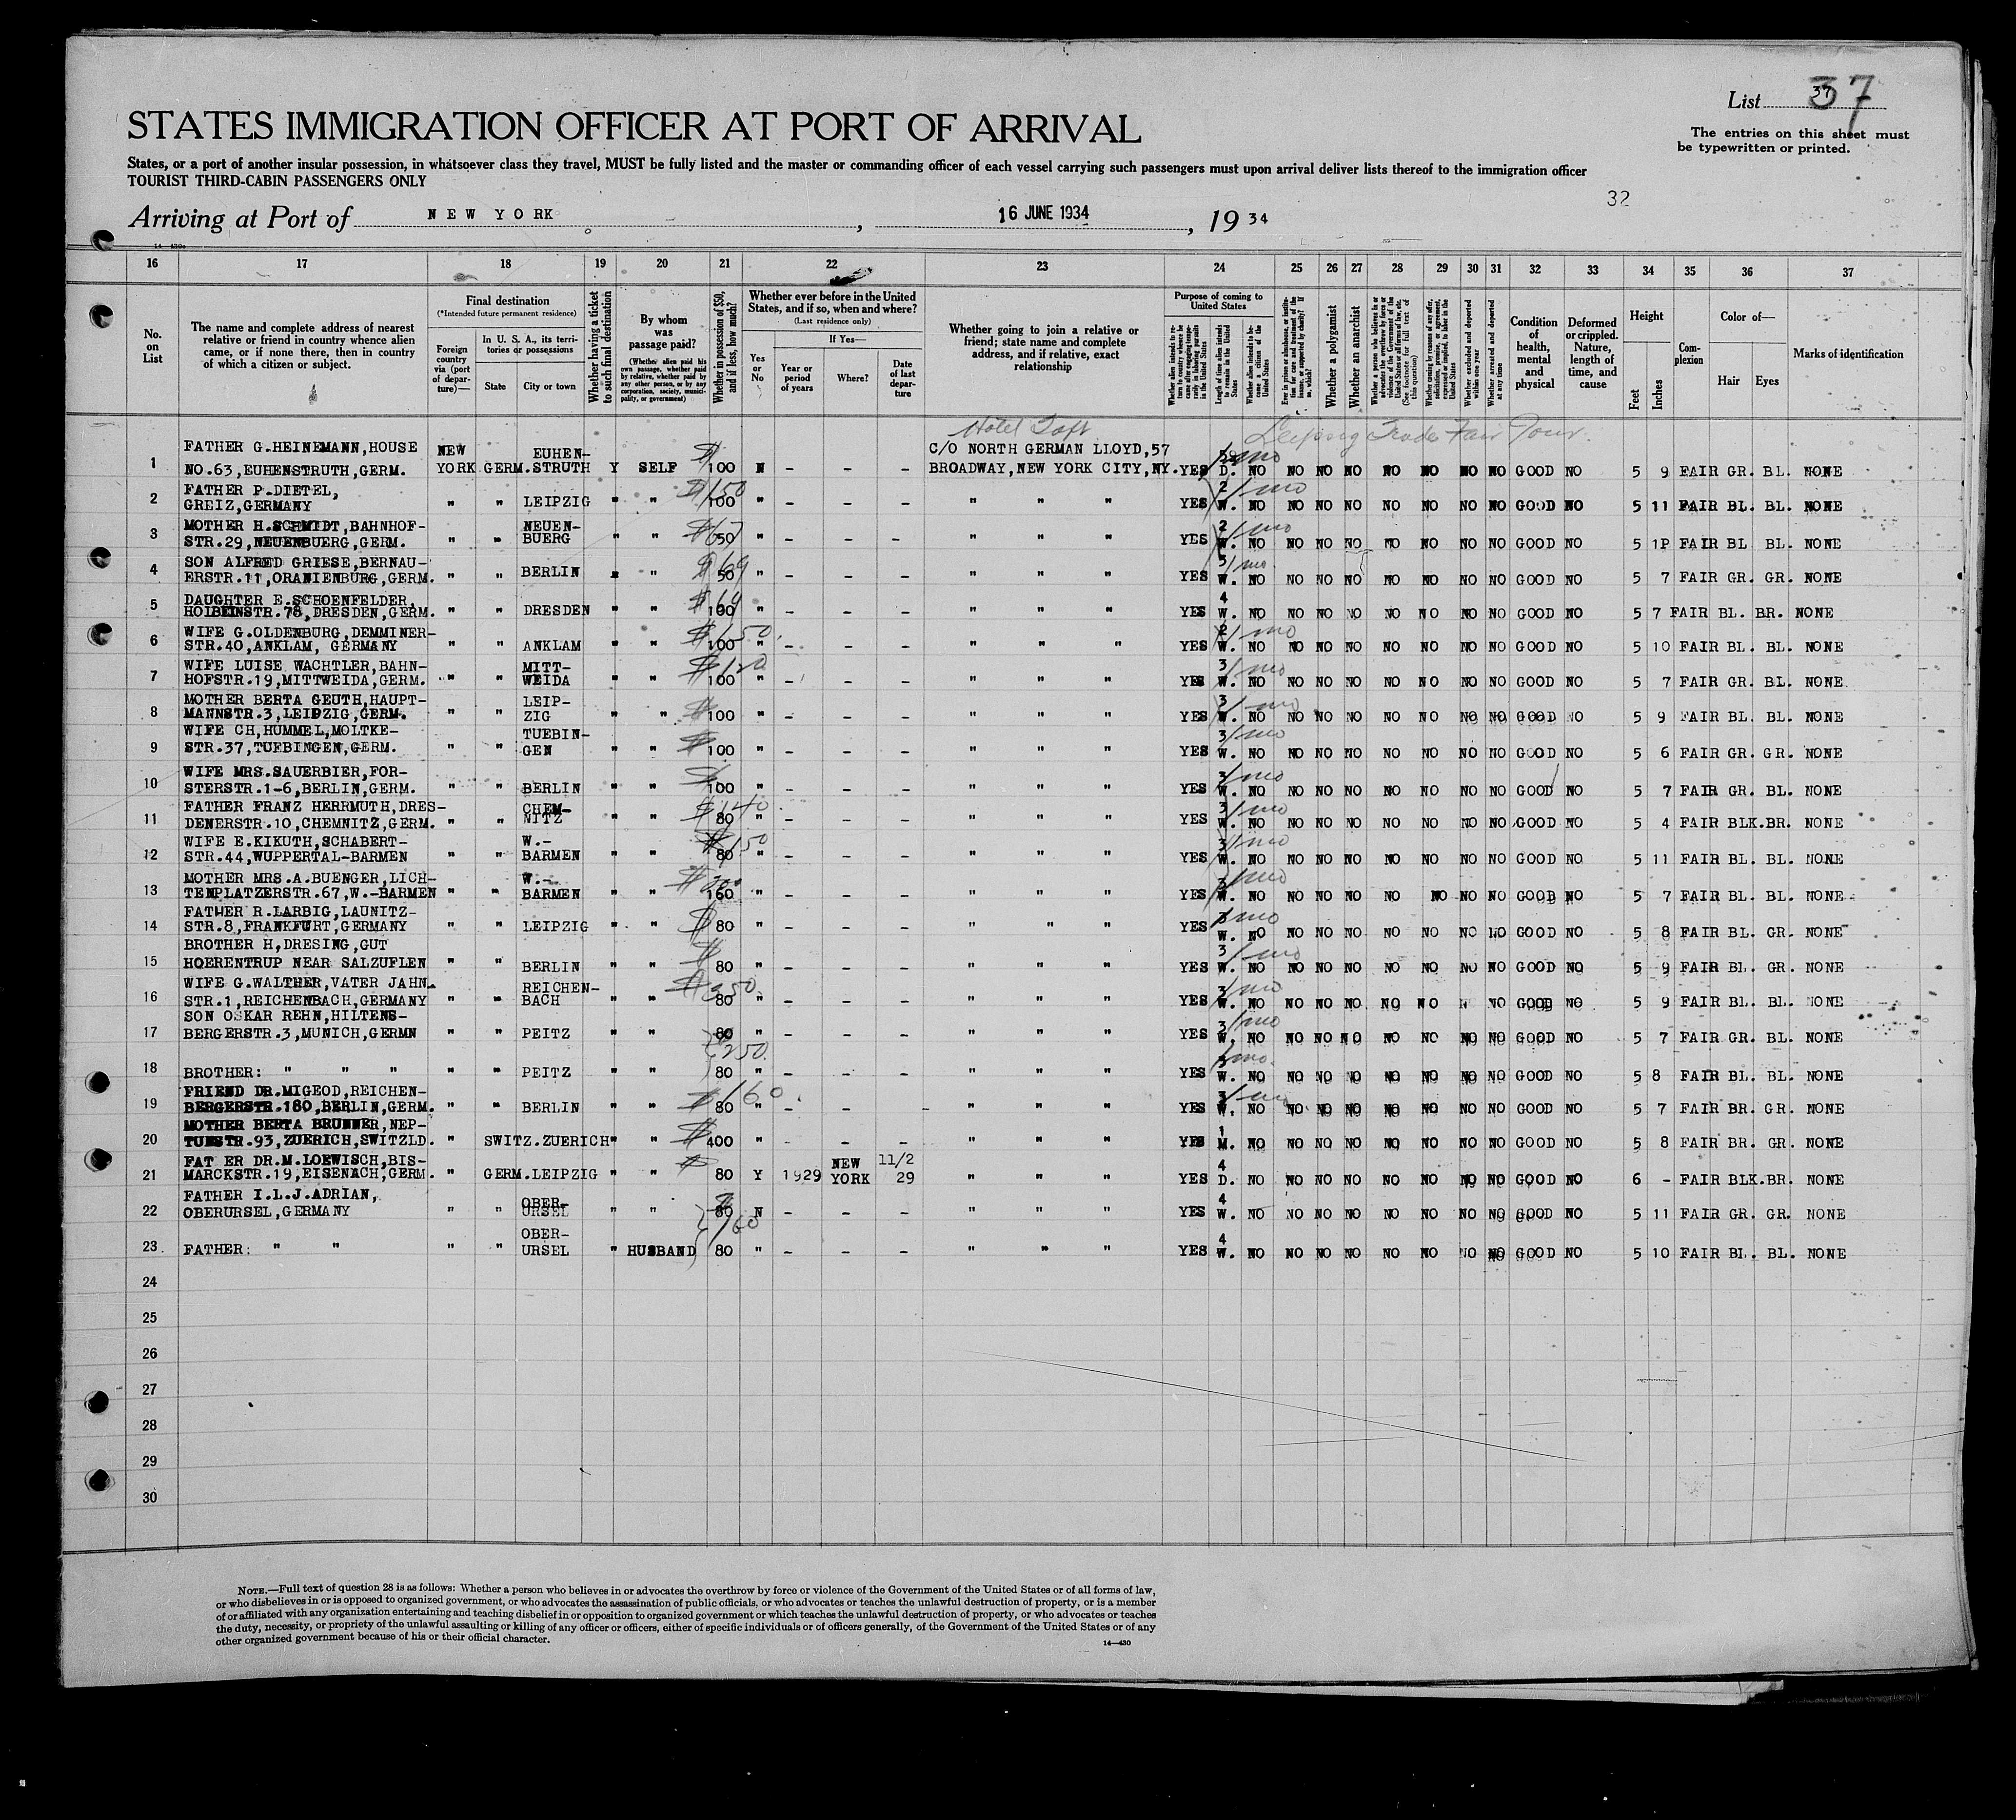 List 37
37
STATES IMMIGRATION OFFICER AT PORT OF ARRIVAL
The entries on this sheet must
be typewritten or printed.
States, or a port of another insular possession, in whatsoever class they travel, MUST be fully listed and the master or commanding officer of each vessel carrying such passengers must upon arrival deliver lists thereof to the immigration officer
TOURIST THIRD-CABIN PASSENGERS ONLY
32
Arriving at Port of NEW YORK, 16 JUNE 1934, 1934
14—430
16 17 18 19 20 21 22 23 24 25 26 27 28 29 30 31 32 33 34 35 36 37
No. on List
The name and complete address of nearest relative or friend in country whence alien came, or if none there, then in country of which a citizen or subject.
Final destination
(*Intended future permanent residence)
Foreign country via (port of departure)—
In U. S. A., its territories or possessions
State
City or town
Whether having a ticket to such final destination
By whom was passage paid?
(Whether alien paid his own passage, whether paid by relative, whether paid by any other person, or by any corporation, society, municipality, or government)
Whether in possession of $50, and if less, how much?
Whether ever before in the United States, and if so, when and where?
(Last residence only)
Yes or No
If Yes—
Year or period of years
Where?
Date of last departure
Whether going to join a relative or friend; state name and complete address, and if relative, exact relationship
Purpose of coming to United States
Length of time alien intends to remain in the United States
Whether alien intends to become a citizen of the United States
Whether a polygamist
Whether an anarchist
Whether excluded and deported within one year
Whether arrested and deported at any time
Condition of health, mental and physical
Deformed or crippled. Nature, length of time, and cause
Height
Feet
Inches
Complexion
Color of—
Hair
Eyes
Marks of identification
Hotel Taft
Leipzig Trade Fair Tour.
1 FATHER G.HEINEMANN,HOUSE NO.63,EUHENSTRUTH,GERM. NEW YORK GERM. EUHEN-STRUTH Y SELF $ 100 N – – – C/O NORTH GERMAN LLOYD,57 BROADWAY,NEW YORK CITY,NY. YES D. NO NO NO NO NO NO NO NO GOOD NO 5 9 FAIR GR. BL. NONE
2 FATHER P.DIETEL, GREIZ,GERMANY " " LEIPZIG " " $150 100 " – – – " " " YES 2 W. 1 mo NO NO NO NO NO NO NO NO GOOD NO 5 11 FAIR BL. BL. NONE
3 MOTHER H.SCHMIDT,BAHNHOF-STR.29,NEUENBUERG,GERM. " " NEUEN-BUERG " " 50 " – – – " " " YES 2 W. 1 mo NO NO NO NO NO NO NO NO GOOD NO 5 1P FAIR BL BL. NONE
4 SON ALFRED GRIESE,BERNAU-ERSTR.11,ORANIENBURG,GERM. " " BERLIN " " $69 50 " – – – " " " YES 3 W. 1 mo. NO NO NO NO NO NO NO NO GOOD NO 5 7 FAIR GR. GR. NONE
5 DAUGHTER E.SCHOENFELDER, HOLBEINSTR.78,DRESDEN,GERM. " " DRESDEN " " $69 100 " – – – " " " YES 4 W. NO NO NO NO NO NO NO NO GOOD NO 5 7 FAIR BL. BR. NONE
6 WIFE G.OLDENBURG,DEMMINER-STR.40,ANKLAM, GERMANY " " ANKLAM " " $150. 100 " – – – " " " YES 2 W. 1 mo NO NO NO NO NO NO NO NO GOOD NO 5 10 FAIR BL. BL. NONE
7 WIFE LUISE WACHTLER,BAHN-HOFSTR.19,MITTWEIDA,GERM. " " MITT-WEIDA " " $120 100 " – – – " " " YES 3 W. 1 mo NO NO NO NO NO NO NO NO GOOD NO 5 7 FAIR GR. BL. NONE
8 MOTHER BERTA GEUTH,HAUPT-MANNSTR.3,LEIPZIG,GERM. " " LEIP-ZIG " " $ 100 " – – – " " " YES 3 W. 1 mo NO NO NO NO NO NO NO NO GOOD NO 5 9 FAIR BL. BL. NONE
9 WIFE CH,HUMMEL,MOLTKE-STR.37,TUEBINGEN,GERM. " " TUEBIN-GEN " " $ 100 " – – – " " " YES 3 W. 1 mo NO NO NO NO NO NO NO NO GOOD NO 5 6 FAIR GR. GR. NONE
10 WIFE MRS.SAUERBIER,FOR-STERSTR.1-6,BERLIN,GERM. " " BERLIN " " $ 100 " – – – " " " YES 3 W. 1 mo NO NO NO NO NO NO NO NO GOOD NO 5 7 FAIR GR. BL. NONE
11 FATHER FRANZ HERRMUTH,DRES-DENERSTR.10,CHEMNITZ,GERM. " " CHEM-NITZ " " $140. 80 " – – – " " " YES 3 W. 1 mo NO NO NO NO NO NO NO NO GOOD NO 5 4 FAIR BLK.BR. NONE
12 WIFE E.KIKUTH,SCHABERT-STR.44,WUPPERTAL-BARMEN " " W.-BARMEN " " $150 80 " – – – " " " YES 3 W. 1 mo NO NO NO NO NO NO NO NO GOOD NO 5 11 FAIR BL. BL. NONE
13 MOTHER MRS.A.BUENGER,LICH-TENPLATZERSTR.67,W.-BARMEN " " W.-BARMEN " " 160 " – – – " " " YES 3 W. 1 mo NO NO NO NO NO NO NO NO GOOD NO 5 7 FAIR BL. BL. NONE
14 FATHER R.LARBIG,LAUNITZ-STR.8,FRANKFURT,GERMANY " " LEIPZIG " " $ 80 " – – – " " " YES 3 W. 1 mo NO NO NO NO NO NO NO NO GOOD NO 5 8 FAIR BL. GR. NONE
15 BROTHER H,DRESING,GUT HOERENTRUP NEAR SALZUFLEN " " BERLIN " " $ 80 " – – – " " " YES 3 W. 1 mo NO NO NO NO NO NO NO NO GOOD NO 5 9 FAIR BL. GR. NONE
16 WIFE G.WALTHER,VATER JAHN-STR.1,REICHENBACH,GERMANY " " REICHEN-BACH " " $350. 80 " – – – " " " YES 3 W. 1 mo NO NO NO NO NO NO NO GOOD NO 5 9 FAIR BL. BL. NONE
17 SON OSKAR REHN,HILTENS-BERGERSTR.3,MUNICH,GERMN " " PEITZ " " 80 " – – – " " " YES 3 W. 1 mo NO NO NO NO NO NO NO NO GOOD NO 5 7 FAIR GR. BL. NONE
$250.
18 BROTHER: " " " " " PEITZ " " 80 " – – – " " " YES 3 W. 1 mo. NO NO NO NO NO NO NO NO GOOD NO 5 8 FAIR BL. BL. NONE
19 FRIEND DR.MIGEOD,REICHEN-BERGERSTR.180,BERLIN,GERM. " " BERLIN " " $160. 80 " – – – " " " YES 3 W. 1 mo NO NO NO NO NO NO NO NO GOOD NO 5 7 FAIR BR. GR. NONE
20 MOTHER BERTA BRUNNER,NEP-TUNSTR.93,ZUERICH,SWITZLD. " SWITZ.ZUERICH " " $ 400 " – – – " " " YES 1 M. NO NO NO NO NO NO NO NO GOOD NO 5 8 FAIR BR. GR. NONE
21 FAT ER DR.M.LOEWISCH,BIS-MARCKSTR.19,EISENACH,GERM. " GERM.LEIPZIG " " $ 80 Y 1929 NEW YORK 11/2 29 " " " YES 4 D. NO NO NO NO NO NO NO NO GOOD NO 6 – FAIR BLK.BR. NONE
22 FATHER I.L.J.ADRIAN, OBERURSEL,GERMANY " " OBER-URSEL " " $ 80 N – – – " " " YES 4 W. NO NO NO NO NO NO NO NO GOOD NO 5 11 FAIR GR. GR. NONE
160
23. FATHER: " " " " OBER-URSEL " HUSBAND 80 " – – – " " " YES 4 W. NO NO NO NO NO NO NO NO GOOD NO 5 10 FAIR BL. BL. NONE
24
25
26
27
28
29
30
NOTE.—Full text of question 28 is as follows: Whether a person who believes in or advocates the overthrow by force or violence of the Government of the United States or of all forms of law,
or who disbelieves in or is opposed to organized government, or who advocates the assassination of public officials, or who advocates or teaches the unlawful destruction of property, or is a member
of or affiliated with any organization entertaining and teaching disbelief in or opposition to organized government or which teaches the unlawful destruction of property, or who advocates or teaches
the duty, necessity, or propriety of the unlawful assaulting or killing of any officer or officers, either of specific individuals or of officers generally, of the Government of the United States or of any
other organized government because of his or their official character.
14—430